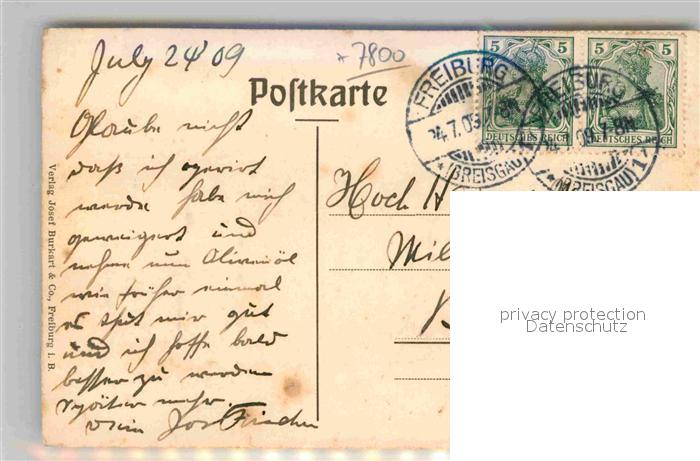 July 24 09
*7800
Postkarte
5 5 5 5
DEUTSCHES REICH DEUTSCHES REICH
FREIBURG
24.7.09
*(BREISGAU)1
FREIBURG
24.7.09.7-8N
*(BREISGAU)1
Glaube nicht
daß ich operirt
werde habe mich
geweigert und
nehme nun Olivenöl
wie früher einmal
es thut mir gut
und ich hoffe bald
besser zu werden
später mehr.
Dein Jos Fischer
Hoch
Mil
Verlag Josef Burkart & Co., Freiburg i. B.
privacy protection
Datenschutz